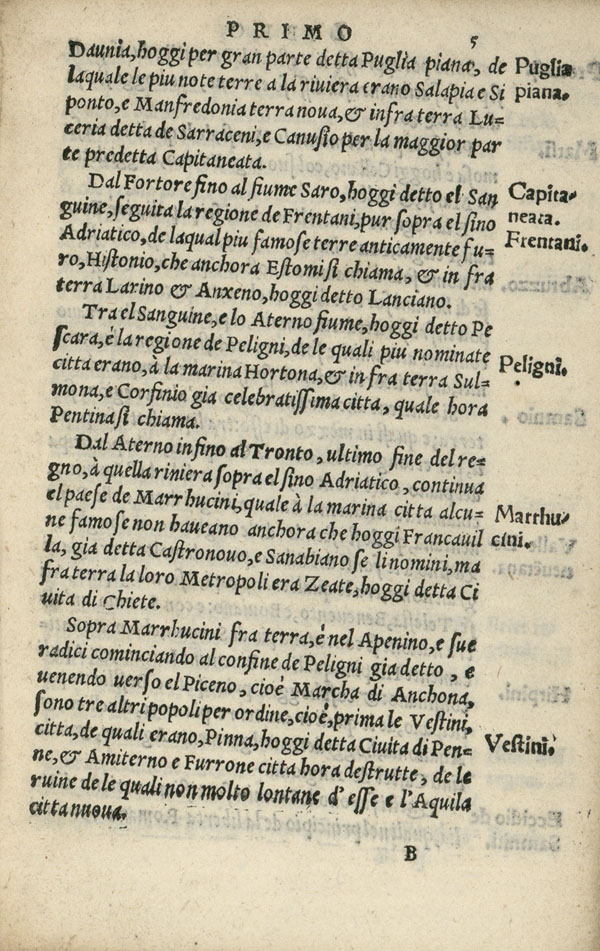 PRIMO 5
Daunia, hoggi per gran parte detta Puglia piana, de Puglia
laquale le piu note terre a la riviera erano Salapia e Si piana.
ponto, e Manfredonia terra noua, & infra terra Lu-
ceria detta de Sarraceni, e Canusio per la maggior par
te predetta Capitaneata.
Dal Fortore fino al fiume Saro, hoggi detto el San Capita-
guine, seguita la regione de Frentani, pur sopra el sino neata.
Adriatico, de laqual piu famose terre anticamente fu- Frentani.
ro, Histonio, che anchora Estomi si chiama, & in fra
terra Larino & Anxeno, hoggi detto Lanciano.
Tra el Sanguine, e lo Aterno fiume, hoggi detto Pe
scara, è la regione de Peligni, de le quali piu nominate
citta erano, à la marina Hortona, & in fra terra Sul- Peligni.
mona, e Corfinio gia celebratissima citta, quale hora
Pentina si chiama.
Dal Aterno infino al Tronto, ultimo fine del re-
gno, à quella riniera sopra el sino Adriatico, continua
el paese de Marrhucini, quale à la marina citta alcu- Marrhu-
ne famose non haueano anchora che hoggi Francauil cini.
la, gia detta Castronouo, e Sanabiano se li nomini, ma
fra terra la loro Metropoli era Zeate, hoggi detta Ci
uita di Chiete.
Sopra Marrhucini fra terra, è nel Apenino, e sue
radici cominciando al confine de Peligni gia detto, e
uenendo uerso el Piceno, cioè Marcha di Anchona,
sono tre altri popoli per ordine, cioè, prima le Vestini,
citta, de quali erano, Pinna, hoggi detta Ciuita di Pen- Vestini.
ne, & Amiterno e Furrone citta hora destrutte, de le
ruine de le quali non molto lontane d'esse e l'Aquila
citta nuoua.
B